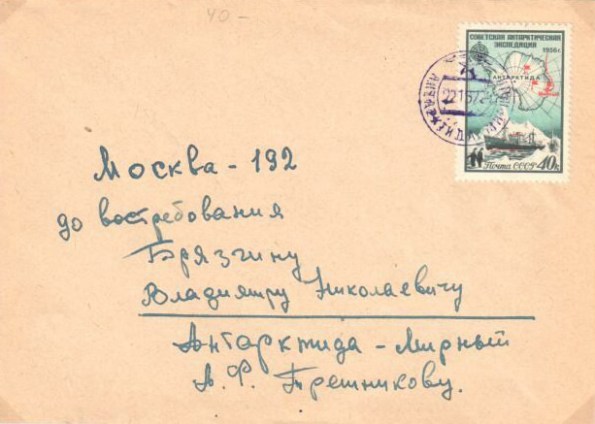 40-
СОВЕТСКАЯ АНТАРКТИЧЕСКАЯ
ЭКСПЕДИЦИЯ
1956г.
АНТАРКТИДА
Почта СССР 40к
Москва - 192
до востребования
Брязгину
Владимиру Николаевичу
Антарктида - Мирный
А. Ф. Трешникову.